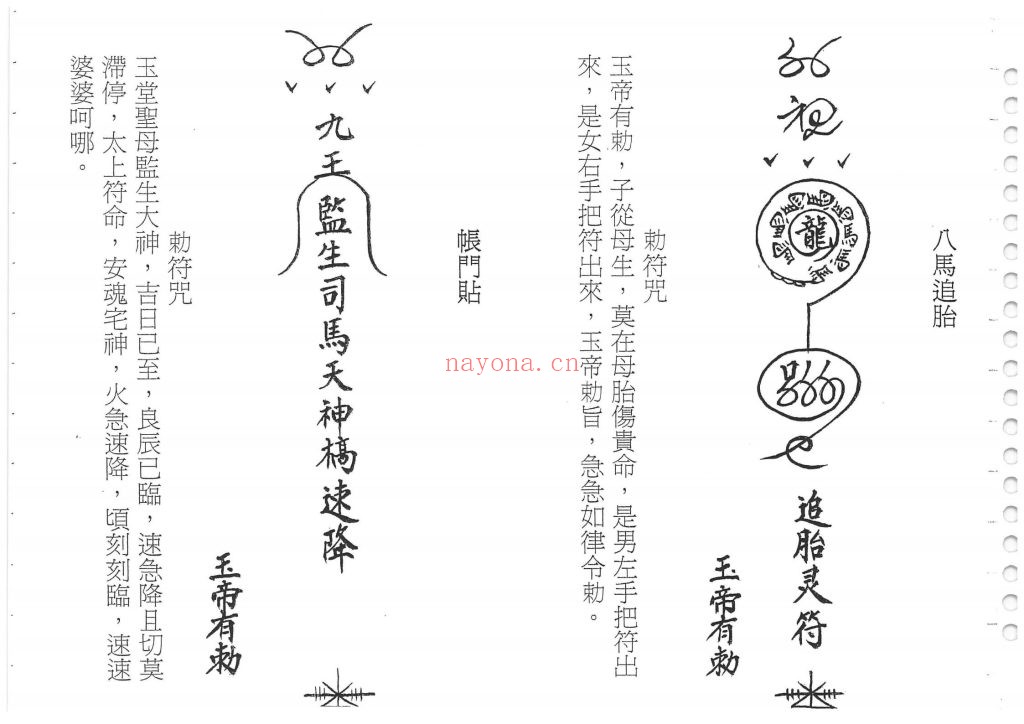 八馬追胎
祝
龍
馬馬馬馬馬馬馬馬
追胎灵符
玉帝有勅
勅符咒
玉帝有勅，子從母生，莫在母胎傷貴命，是男左手把符出
來，是女右手把符出來，玉帝勅旨，急急如律令勅。
帳門貼
九王監生司馬天神槁速降
玉帝有勅
勅符咒
玉堂聖母監生大神，吉日已至，良辰已臨，速急降且切莫
滯停，太上符命，安魂宅神，火急速降，頃刻刻臨，速速
婆婆呵哪。
nayona.cn